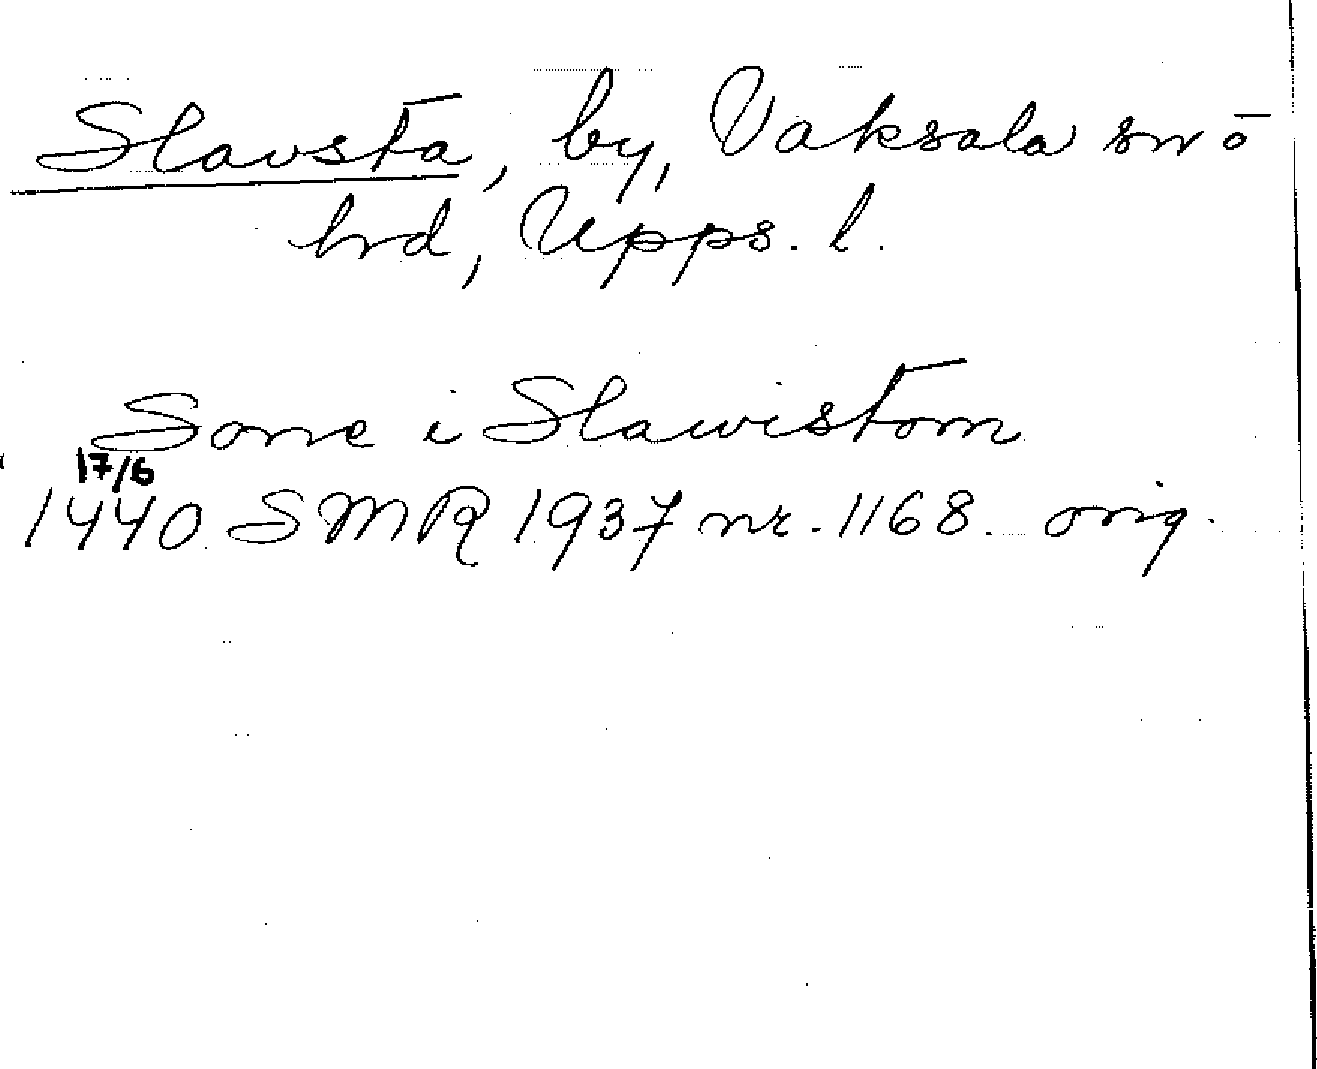 Slavsta, by, Vaksala sn o
hd, Upps. l.
Sone i Slawistom
17/6
1440 SMR 1937 nr. 1168. orig.